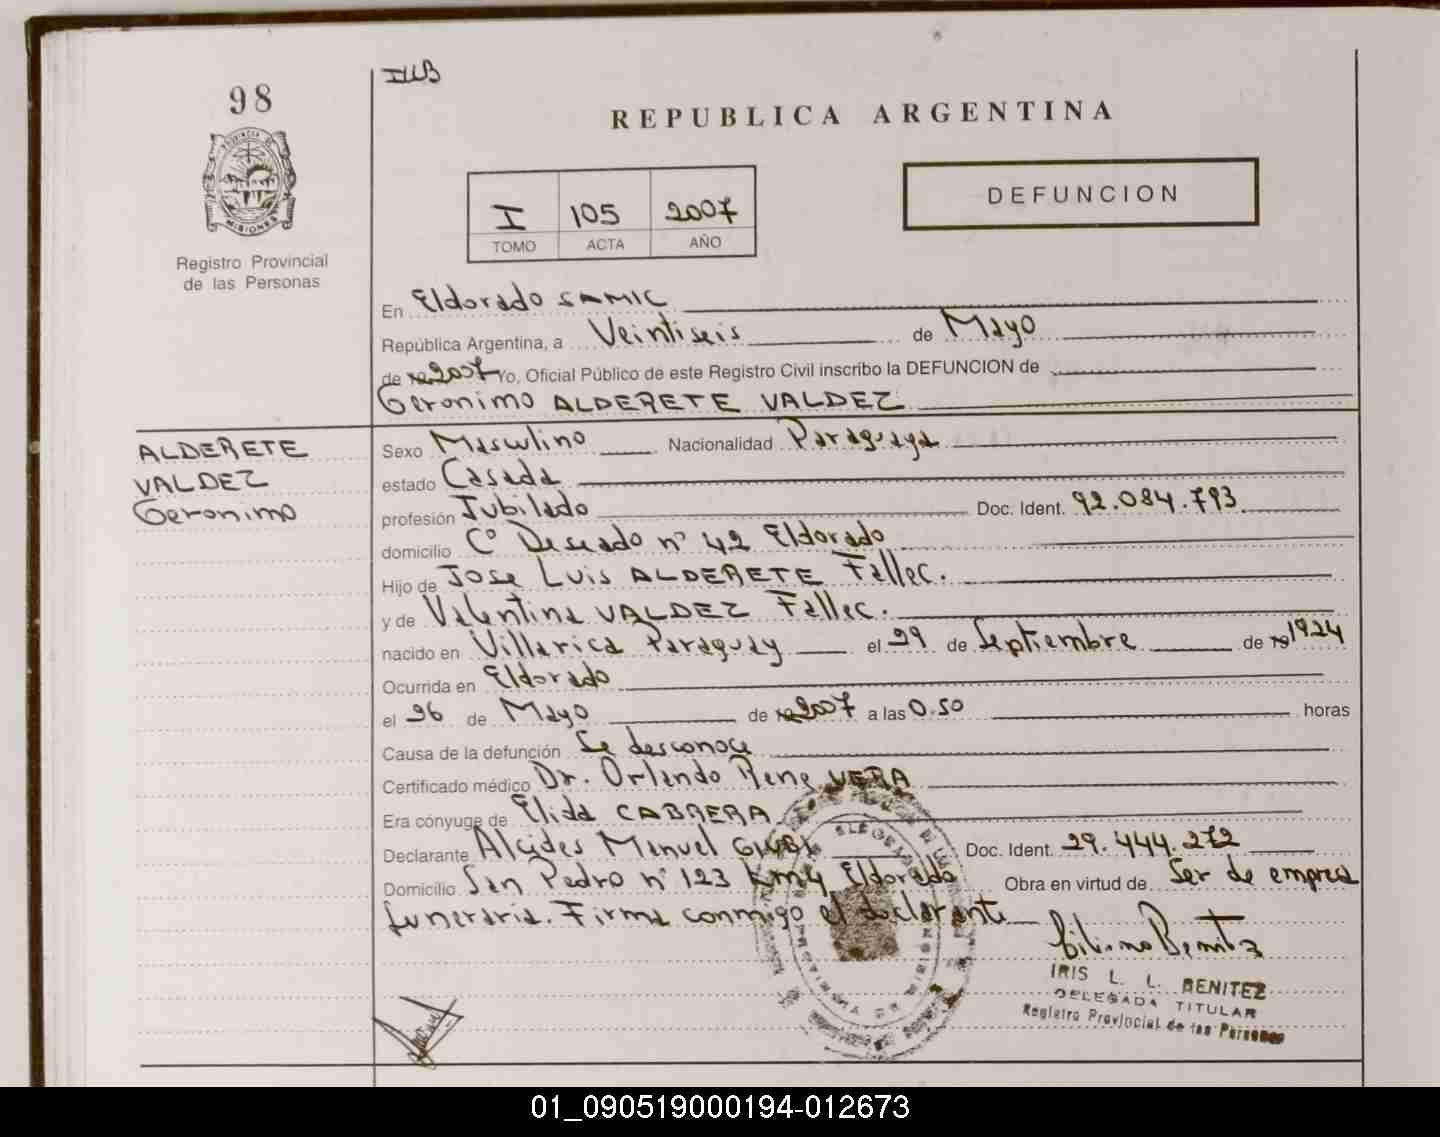 98
REPUBLICA ARGENTINA
PROVINCIA DE MISIONES
Registro Provincial
de las Personas
I 105 2007
TOMO ACTA AÑO
DEFUNCION
En Eldorado SAMIC
República Argentina, a Veintiseis de Mayo
de 2007 Yo, Oficial Público de este Registro Civil inscribo la DEFUNCION de
Geronimo ALDERETE VALDEZ
ALDERETE
VALDEZ
Geronimo
Sexo Masculino Nacionalidad Paraguaya
estado Casada
profesión Jubilado Doc. Ident. 92.084.793
domicilio Cº Deseado nº 42 Eldorado
Hijo de Jose Luis ALDERETE Fallec.
y de Valentina VALDEZ Fallec.
nacido en Villarica Paraguay el 29 de Septiembre de 19 1924
Ocurrida en Eldorado
el 26 de Mayo de 2007 a las 0.50 horas
Causa de la defunción Se desconoce
Certificado médico Dr. Orlando Rene VERA
Era cónyuge de Elida CABRERA
Declarante Alcides Manuel Doc. Ident. 29.444.272
Domicilio San Pedro nº 123 Km4 Eldorado Obra en virtud de Ser de empresa
funeraria. Firma conmigo el declarante
IRIS L. L. BENITEZ
DELEGADA TITULAR
Registro Provincial de las Personas
01_090519000194-012673